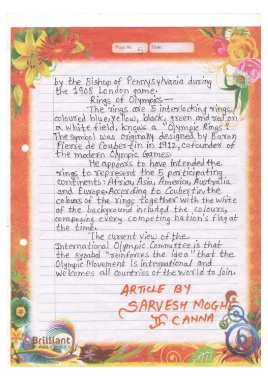 Page No. 5
by the Bishop of Pennysylvania during
the 1908 London game.
Rings of Olympics—
The rings are 5 interlocking rings,
coloured blue, yellow, black, green and red on
a white field, known a "Olympic Rings".
The symbol was originally designed by Baron
Pierre de Coubertin in 1912, cofounder of
the modern Olympic Games.
He appears to have intended the
rings to represent the 5 participating
continents: Africa, Asia, America, Australia
and Europe. According to Coubertin, the
colours of the rings together with the white
of the background included the colours,
composing every competing nation's flag at
the time.
The current view of the
International Olympic Committee is that
the symbol "reinforces the idea" that the
Olympic Movement is international and
welcomes all countries of the world to join.
ARTICLE BY
SARVESH MOGHE
II CANNA
Brilliant
6